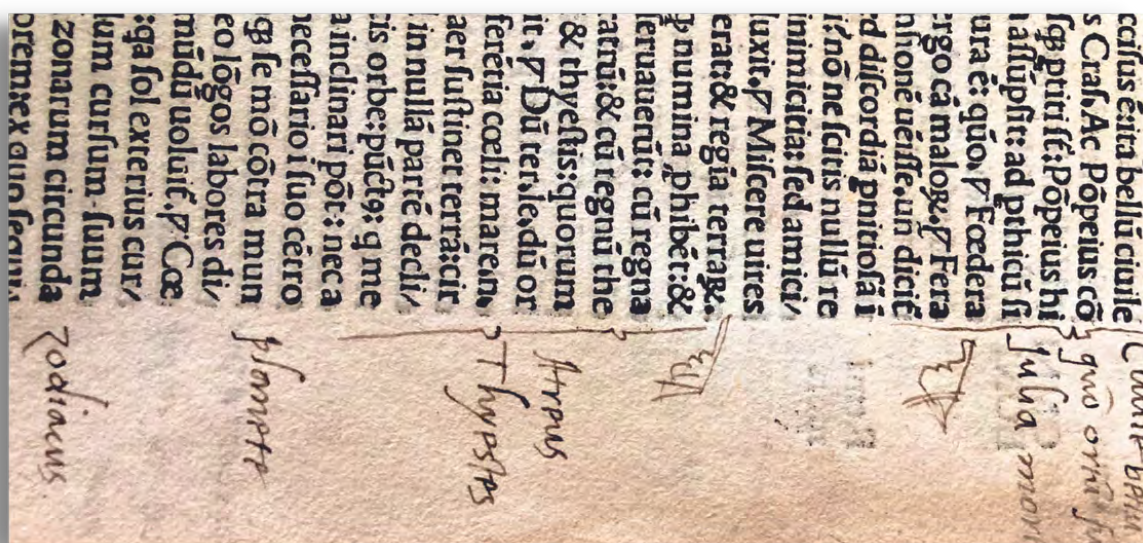 cciſus e cara bellū ciuile
s Craſ. Ac Pōpeius cō
ptiti ſt: Pōpeius hi
aſſūpſit: ad pthicū ſi
ura ē: quo. Fœdera
rgo cā maloꝝ. Fera
nſionē ueiſſe. un dicit
d diſcordiā pnitioſā i
nō neſcitis nullū re
inimicitia: ſed amici/
luxit. Miſcere uires
erat: & regia terraꝝ.
numina phibēt: &
ſeruauerūt: cū regna
atrū: & cū regnū the
& thyeſtis: quorum
it. Dū ter. le. dū or
ferētia coeli: mare in
aer ſuſtinet terrā: cir
in nullā partē decli/
is orbe: q me
a inclinari pōt: nec a
neceſſario i ſuo cētro
ſe mō cōtra mun
eo lōgos labores di/
mūdū uoluit. Cœ
: qa ſol cur/
lum curſum ſuum
zonarum circunda
orem ex quo
Julia mor
Atreus
Thyestes
planete
zodiacus